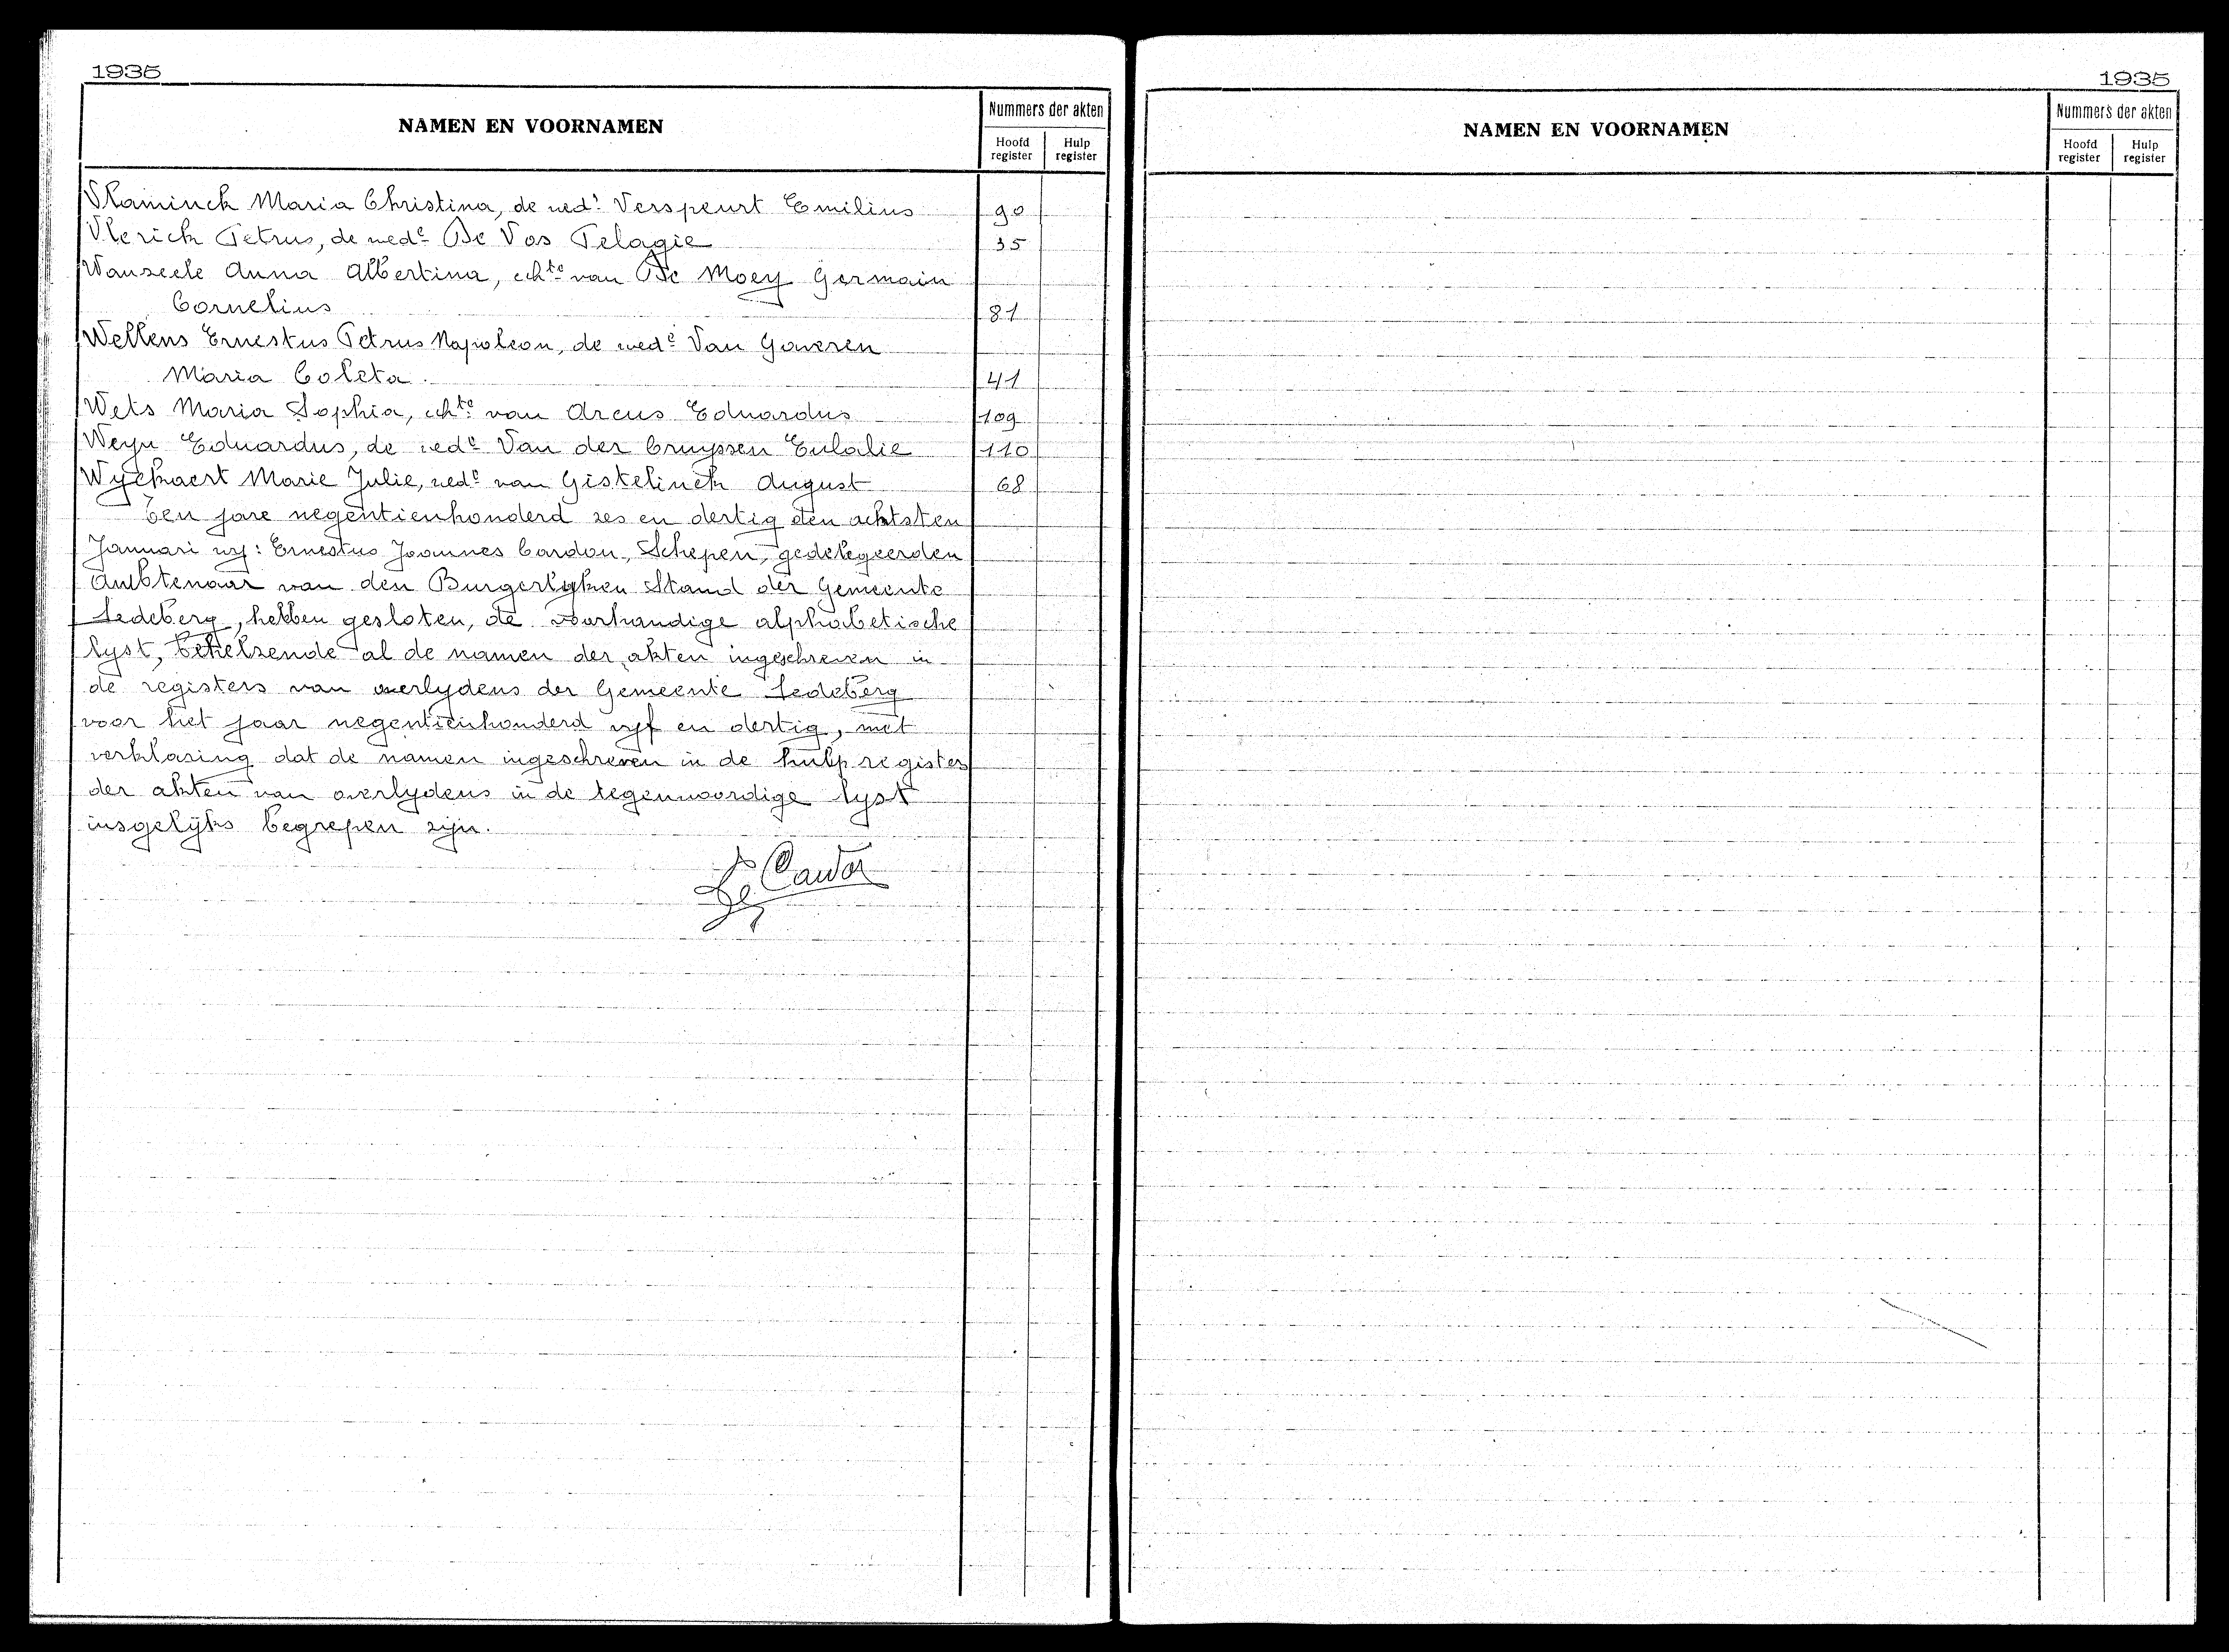 1935
NAMEN EN VOORNAMEN
Nummers der akten
Hoofd register
Hulp register
Vlaminck Maria Christina, de wed.e Verspeurt Emilius 90
Vlerick Petrus, de wed.e De Vos Pelagie 35
Wauseele Anna Albertina, echt.te van De Moey Germain
Cornelius 81
Wellens Ernestus Petrus Napoleon, de wed.e Van Gaveren
Maria Coleta. 41
Wets Maria Sophia, echt.te van Arcus Eduardus 109
Weyn Eduardus, de wed.e Van der Cruyssen Eulalie 110
Wyckaert Marie Julie, wed.e van Gistelinck August 68
Ten jare negentienhonderd zes en dertig den achtsten
Januari wy: Ernestus Joannes Cardon, Schepen, gedelegeerden
Ambtenaar van den Burgerlyken Stand der Gemeente
Ledeberg, hebben gesloten, de voorhandige alphabetische
lyst, behelzende al de namen der akten ingeschreven in
de registers van overlydens der Gemeente Ledeberg
voor het jaar negentienhonderd vyf en dertig, met
verklaring dat de namen ingeschreven in de hulpregister
der akten van overlydens in de tegenwoordige lyst
insgelyks begrepen zijn.
Cardon
1935
NAMEN EN VOORNAMEN
Nummers der akten
Hoofd register
Hulp register